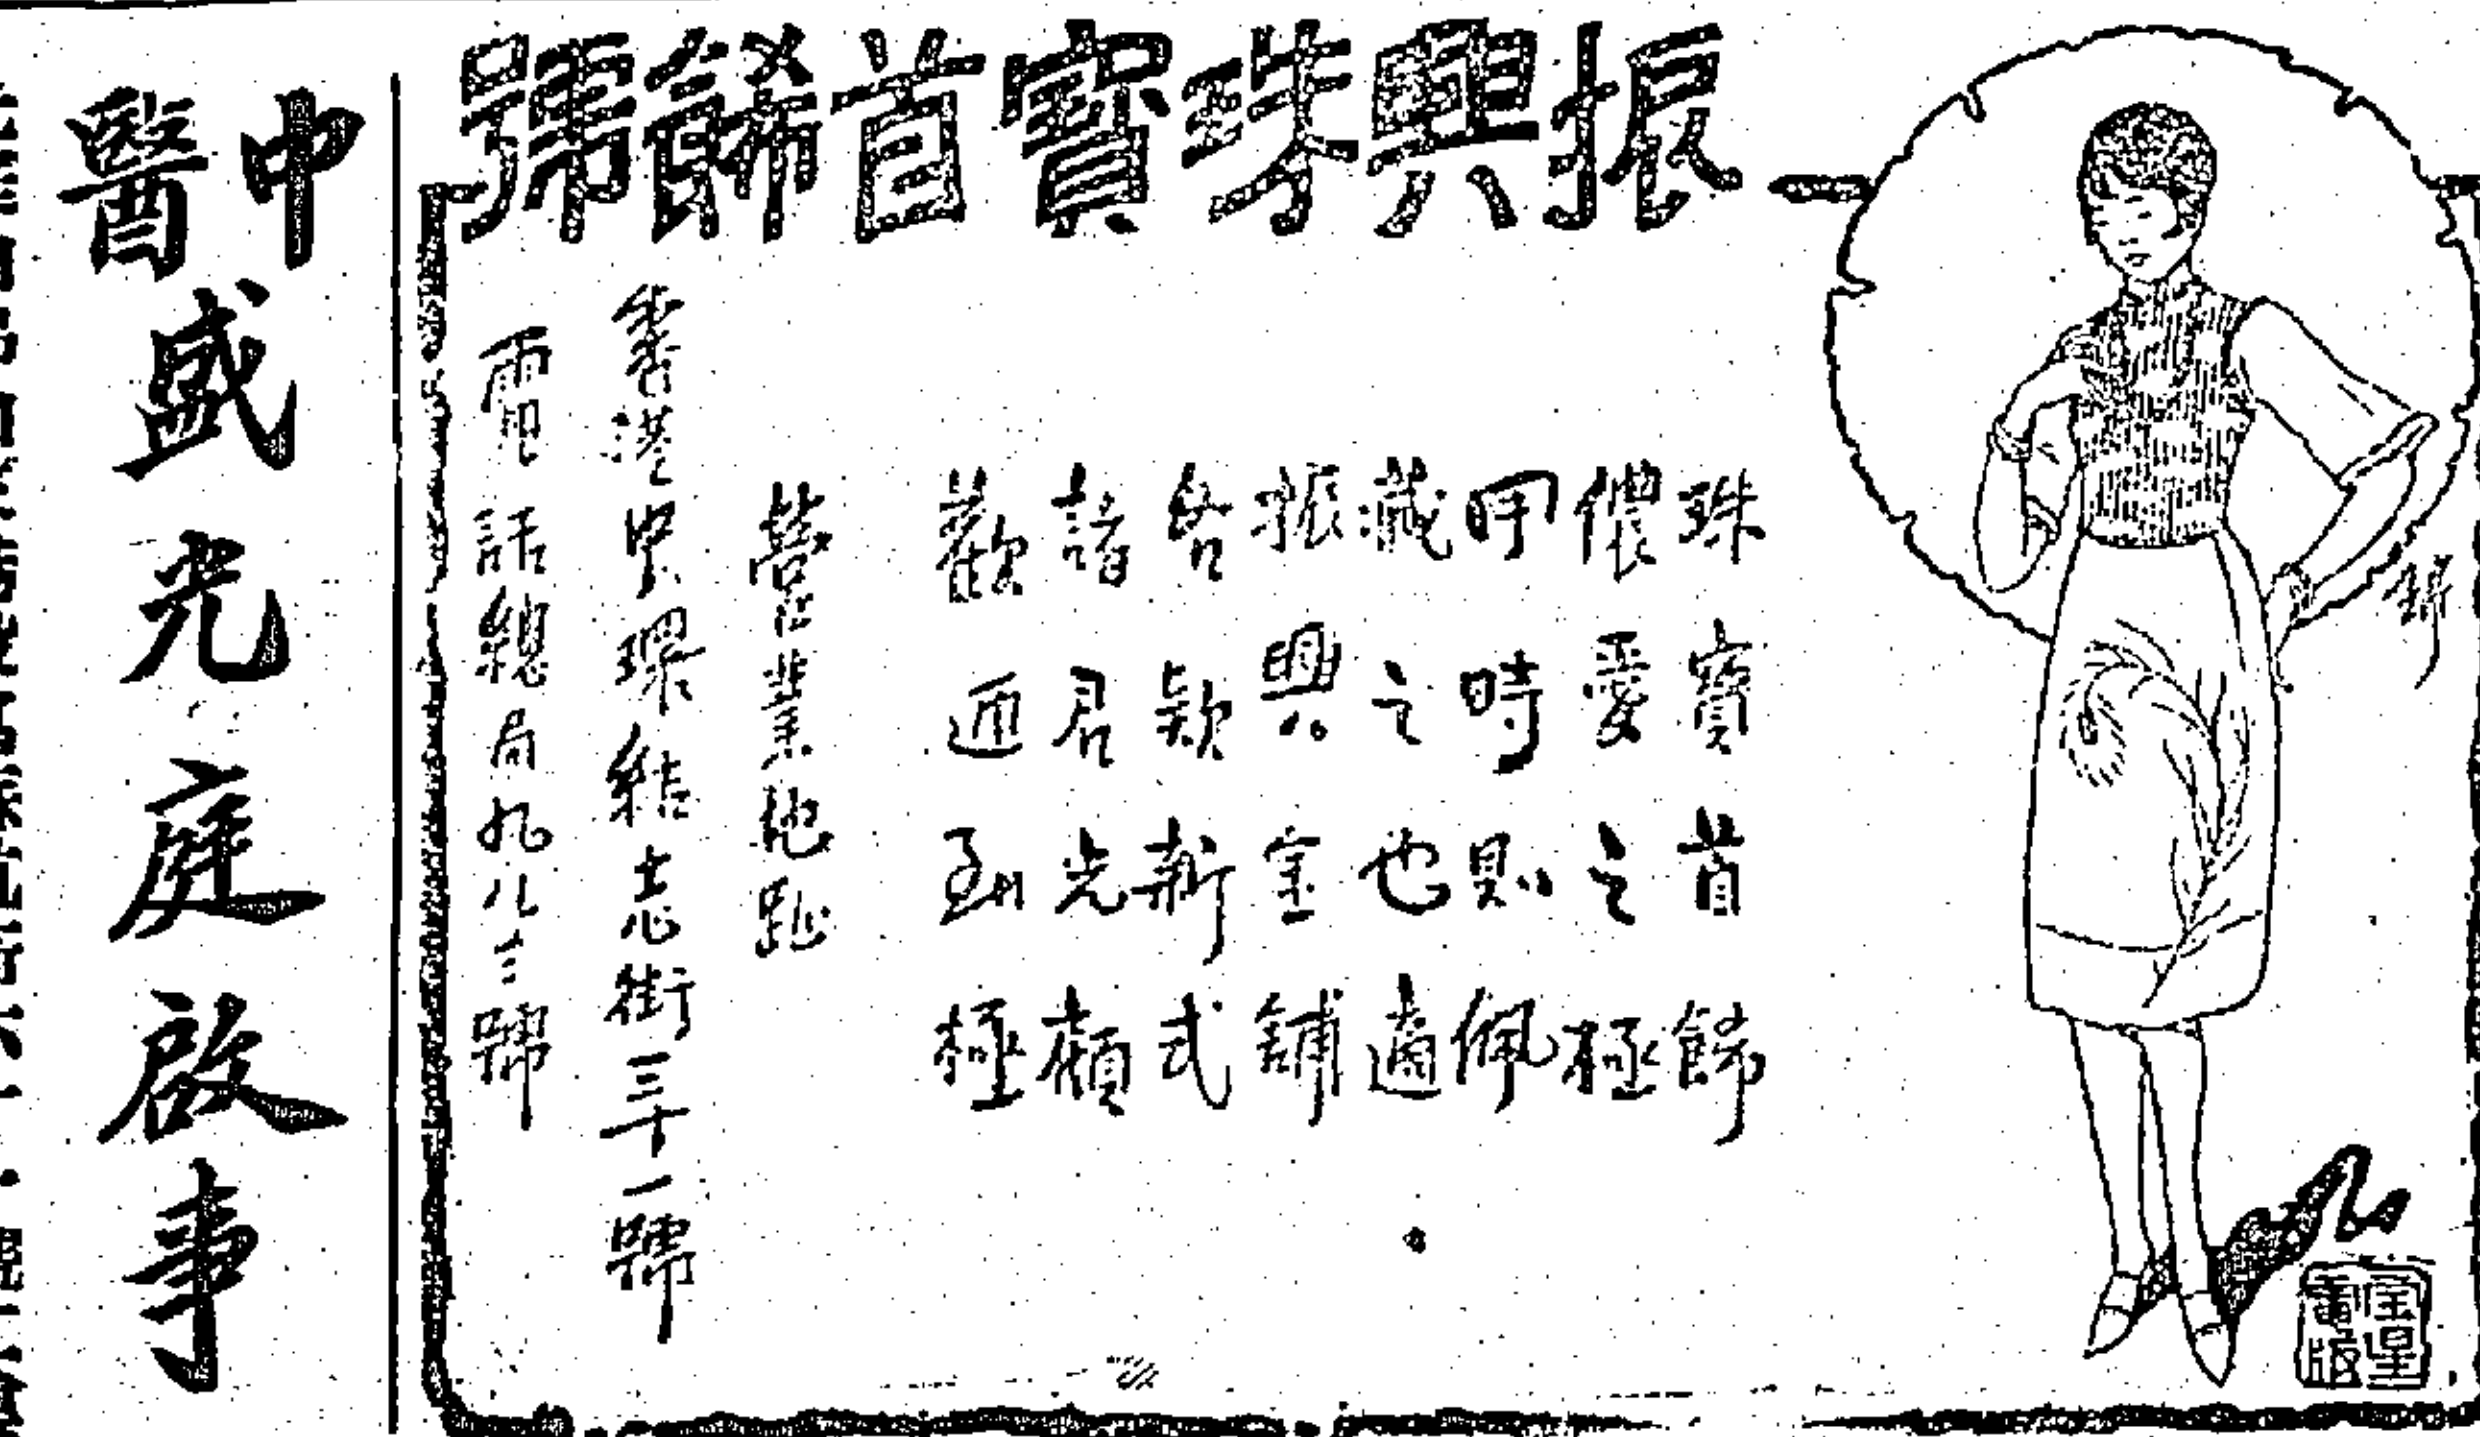 振興珠寶首飾號
珠寶首飾
儂愛之極
時則佩
藏之也適
振興金舖
各款新式
諸君光顧
歡迎到極
營業地址
香港中環結志街三十一號
電話總局九八三號
金星電版
中醫盛光庭啟事